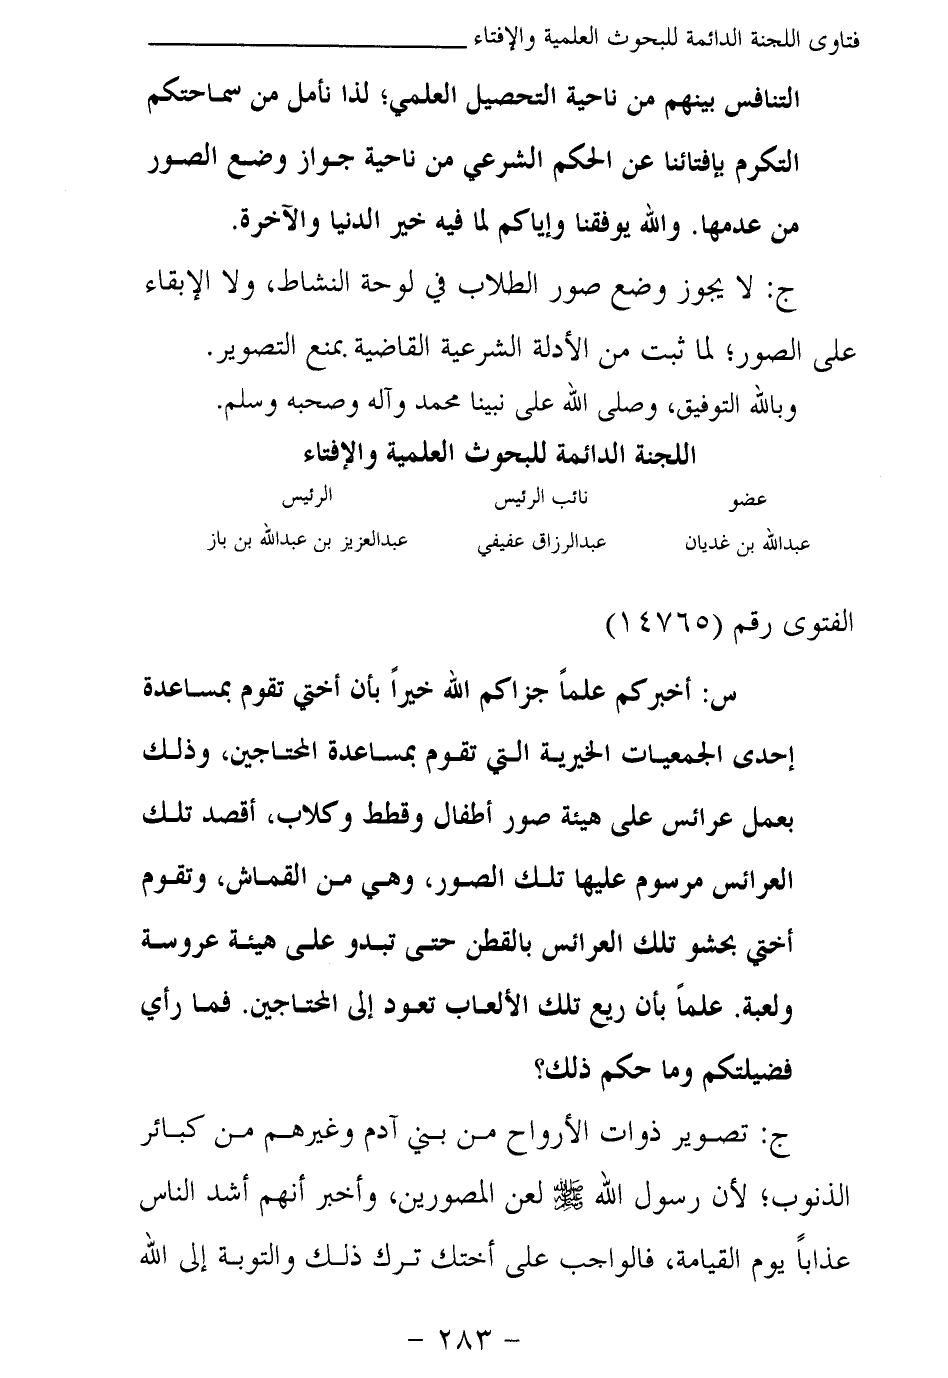 فتاوى اللجنة الدائمة للبحوث العلمية والإفتاء
التنافس بينهم من ناحية التحصيل العلمي؛ لذا نأمل من سماحتكم
التكرم بإفتائنا عن الحكم الشرعي من ناحية جواز وضع الصور
من عدمها. والله يوفقنا وإياكم لما فيه خير الدنيا والآخرة.
ج: لا يجوز وضع صور الطلاب في لوحة النشاط، ولا الإبقاء
على الصور؛ لما ثبت من الأدلة الشرعية القاضية بمنع التصوير.
وبالله التوفيق، وصلى الله على نبينا محمد وآله وصحبه وسلم.
اللجنة الدائمة للبحوث العلمية والإفتاء
عضو نائب الرئيس الرئيس
عبدالله بن غديان عبدالرزاق عفيفي عبدالعزيز بن عبدالله بن باز
الفتوى رقم (١٤٧٦٥)
س: أخبركم علماً جزاكم الله خيراً بأن أختي تقوم بمساعدة
إحدى الجمعيات الخيرية التي تقوم بمساعدة المحتاجين، وذلك
بعمل عرائس على هيئة صور أطفال وقطط وكلاب، أقصد تلك
العرائس مرسوم عليها تلك الصور، وهي من القماش، وتقوم
أختي بحشو تلك العرائس بالقطن حتى تبدو على هيئة عروسة
ولعبة. علماً بأن ريع تلك الألعاب تعود إلى المحتاجين. فما رأي
فضيلتكم وما حكم ذلك؟
ج: تصوير ذوات الأرواح من بني آدم وغيرهم من كبائر
الذنوب؛ لأن رسول الله ﷺ لعن المصورين، وأخبر أنهم أشد الناس
عذاباً يوم القيامة، فالواجب على أختك ترك ذلك والتوبة إلى الله
- ٢٨٣ -